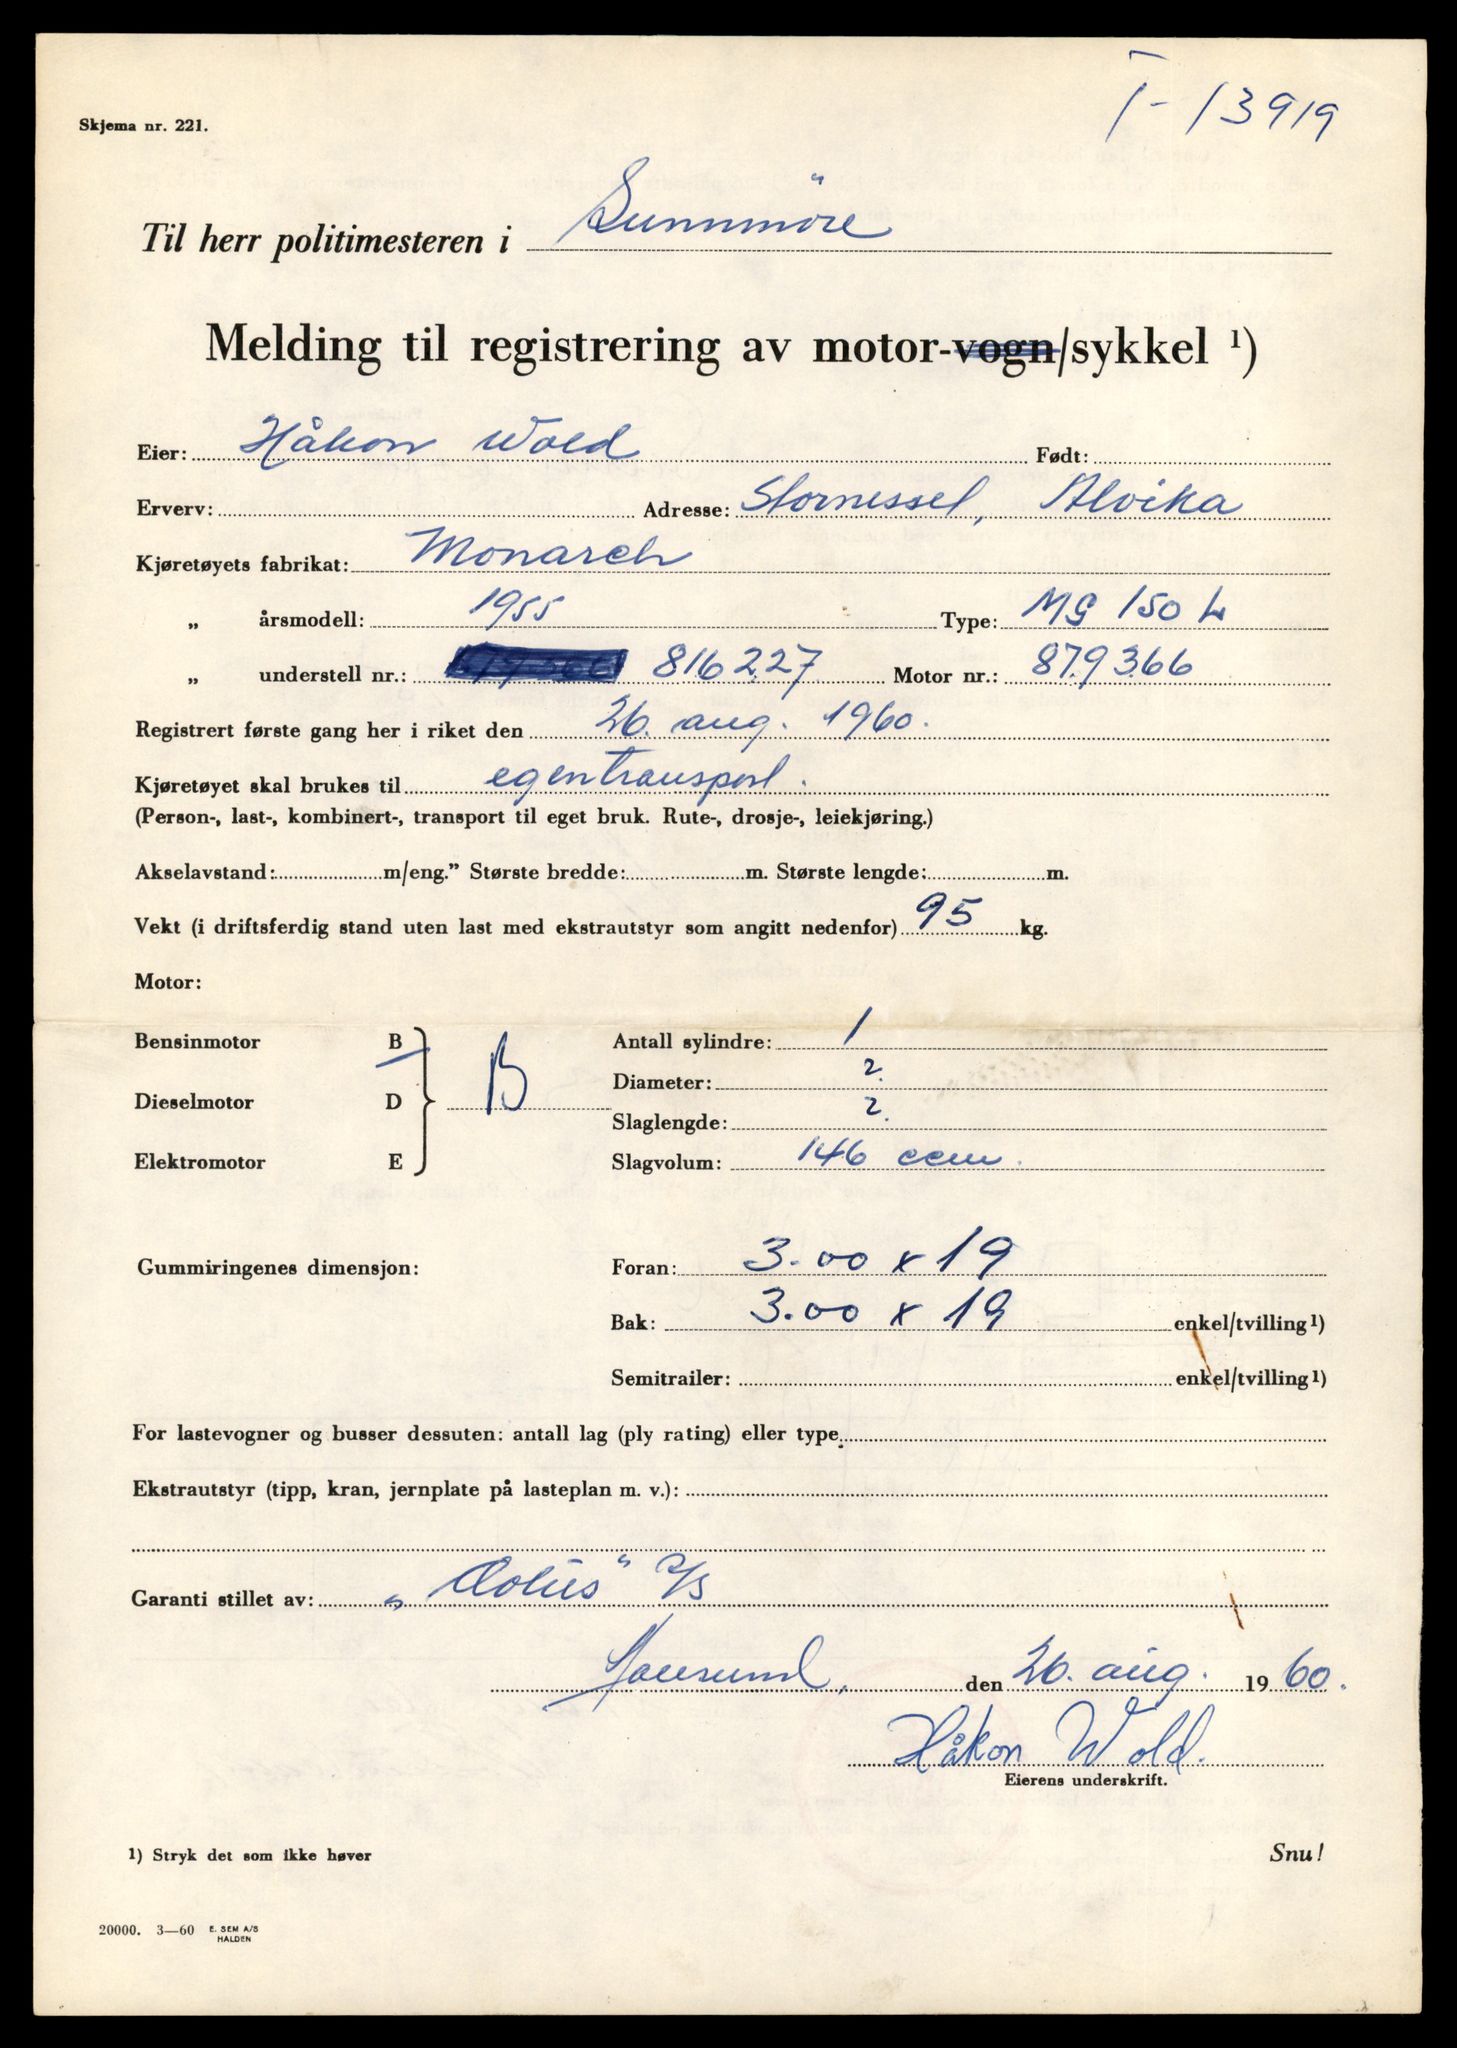 T-13919
Skjema nr. 221.
Til herr politimesteren i Sunnmöre
Melding til registrering av motor-vogn/sykkel ¹)
Eier: Håkon Wold Født:
Erverv: Adresse: Stornessel, Alvika
Kjøretøyets fabrikat: Monarch
„ årsmodell: 1955 Type: MG 150 L
„ understell nr.: 816227 Motor nr.: 879366
Registrert første gang her i riket den 26. aug. 1960.
Kjøretøyet skal brukes til egentransport.
(Person-, last-, kombinert-, transport til eget bruk. Rute-, drosje-, leiekjøring.)
Akselavstand: m/eng.” Største bredde: m. Største lengde: m.
Vekt (i driftsferdig stand uten last med ekstrautstyr som angitt nedenfor) 95 kg.
Motor:
Bensinmotor B Antall sylindre: 1
Diameter: ?
Dieselmotor D B
Slaglengde: ?
Elektromotor E Slagvolum: 146 ccm.
Gummiringenes dimensjon: Foran: 3.00 x 19
Bak: 3.00 x 19 enkel/tvilling¹)
Semitrailer: enkel/tvilling¹)
For lastevogner og busser dessuten: antall lag (ply rating) eller type
Ekstrautstyr (tipp, kran, jernplate på lasteplan m. v.):
Garanti stillet av: A/S
den 26. aug. 1960.
Håkon Wold.
Eierens underskrift.
1) Stryk det som ikke høver Snu!
20000. 3—60 E. SEM A/S
HALDEN